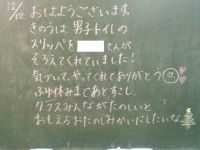 12/12
おはようございます。
きのうは男子トイレの
スリッパを さんが
そろえてくれていました!
気づいて、やってくれてありがとう
ふゆ休みまであとすこし。
クラスみんながたのしいと
おもえるおたのしみかいにしたいな